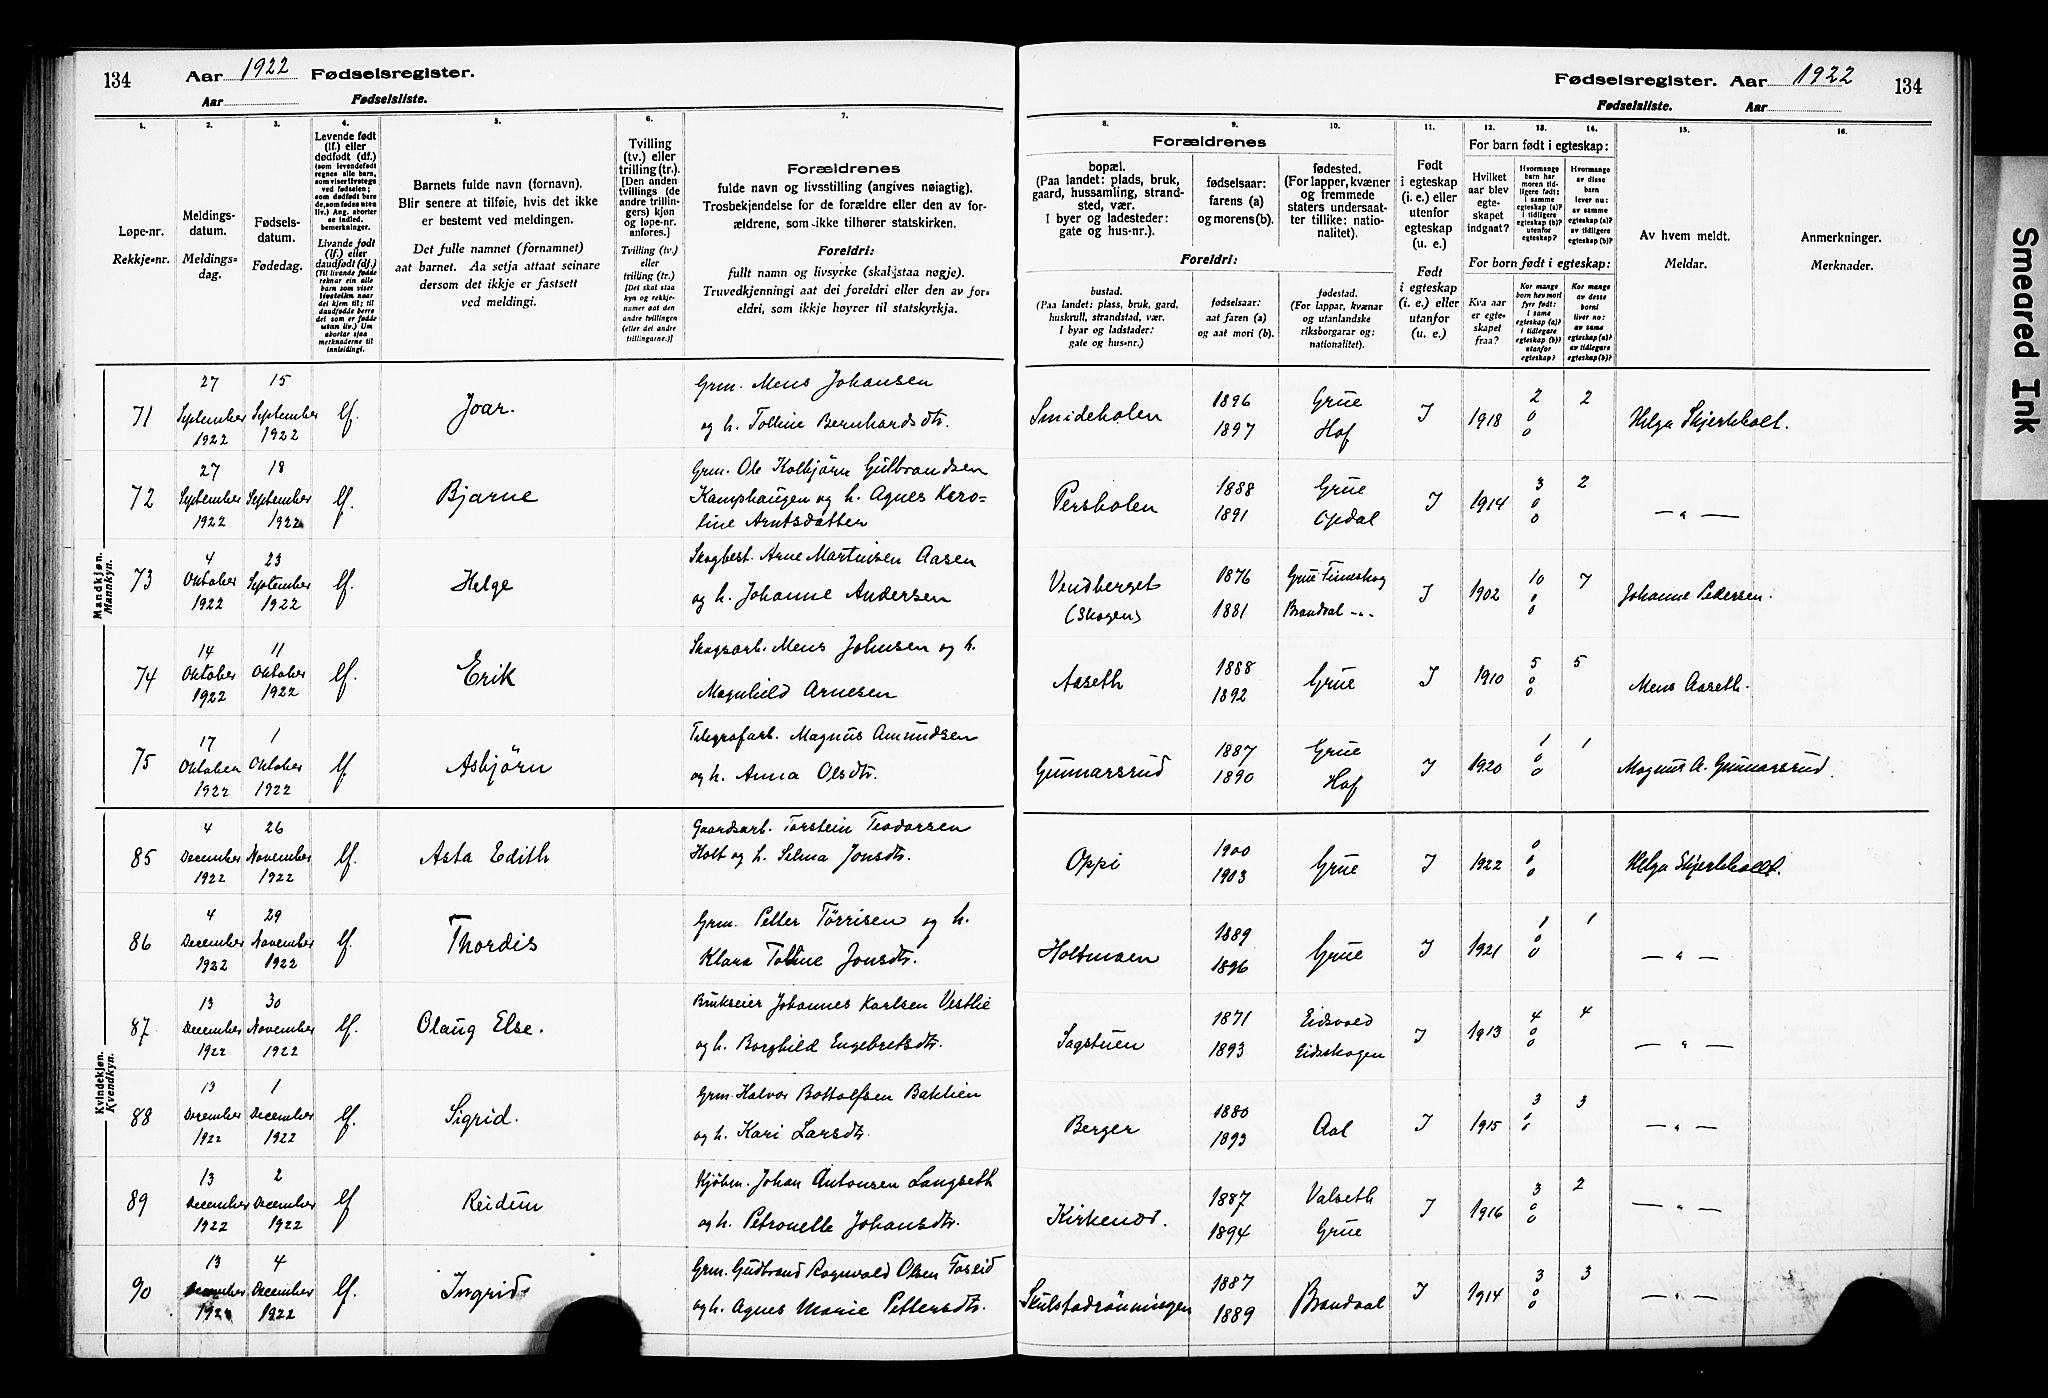 134 Aar 1922 Fødselsregister.
Aar Fødselsliste.
Fødselsregister. Aar 1922 134
Fødselsliste. Aar
1. 2. 3. 4. 5. 6. 7.
Løpe-nr.
Rekkje-nr.
Meldings-
datum.
Meldings-
dag.
Fødsels-
datum.
Fødedag.
Levende født
(lf.) eller
dødfødt (df.)
Livande født
(lf.) eller
daudfødt (df.)
Barnets fulde navn (fornavn).
Blir senere at tilføie, hvis det ikke
er bestemt ved meldingen.
Det fulle namnet (fornamnet)
aat barnet. Aa setja attaat seinare
dersom det ikkje er fastsett
ved meldingi.
Tvilling
(tv.) eller
trilling (tr.)
[Den anden
tvillings (de
andre trillin-
gers) kjøn
og løpe-nr.
anføres.]
Tvilling (tv.)
eller
trilling (tr.)
Forældrenes
fulde navn og livsstilling (angives nøiagtig).
Trosbekjendelse for de forældre eller den av for-
ældrene, som ikke tilhører statskirken.
Foreldri:
fullt namn og livsyrke (skal staa nøgje).
Truvedkjenningi aat dei foreldri eller den av for-
eldri, som ikkje høyrer til statskyrkja.
8. 9. 10. 11. 12. 13. 14. 15. 16.
Forældrenes
bopæl.
(Paa landet: plads, bruk,
gaard, hussamling, strand-
sted, vær.
I byer og ladesteder:
gate og hus-nr.).
fødselsaar:
farens (a)
og morens (b).
fødested.
(For lapper, kvæner
og fremmede
staters undersaat-
ter tillike: natio-
nalitet).
Foreldri:
bustad.
(Paa landet: plass, bruk, gard,
huskrull, strandstad, vær.
I byar og ladstader:
gate og hus-nr.)
fødselsaar:
aat faren (a)
og aat mori (b).
fødestad.
(For lappar, kvænar
og utanlandske
riksborgarar og:
nationalitet).
Født
i egteskap
(i. e.) eller
utenfor
egteskap
(u. e.)
Født
i egteskap
(i. e.) eller
utanfor
(u. e.)
For barn født i egteskap:
Hvilket
aar blev
egte-
skapet
indgaat?
For born født i egteskap:
Kva aar
er egte-
skapet
fraa?
Av hvem meldt.
Meldar.
Anmerkninger.
Merknader.
Mandkjøn.
Mannkyn.
71 27 September 1922 15 September 1922 lf. Joar. Grm. Mens Johansen
og h. Tolline Bernhardsdtr. Smideholen 1896 1897 Grue Hof I 1918 2 0 0 2 Helga Skjerkholt.
72 27 September 1922 18 September 1922 lf. Bjarne Grm. Ole Kolbjørn Gulbrandsen
Kamphaugen og h. Agnes Karo-
line Arntsdatter Persholen 1888 1891 Grue Opdal I 1914 3 0 0 2 — " —
73 4 Oktober 1922 23 September 1922 lf. Helge Skogbest. Arne Martinsen Aasen
og h. Johanne Andersen Vendberget (Skogen) 1876 1881 Grue Finneskog Brandval -"- I 1902 10 0 0 7 Johanne Pedersen.
74 14 Oktober 1922 11 Oktober 1922 lf. Erik Skogsarb. Mens Johnsen og h.
Magnhild Arnesen Aaseth 1888 1892 Grue I 1910 5 0 0 5 Mens Aaseth.
75 17 Oktober 1922 1 Oktober 1922 lf Asbjörn Telegrafarb. Magnus Amundsen
og h. Anna Olsdtr. Gunnarsrud 1887 1890 Grue Hof I 1920 1 0 0 1 Magnus A. Gunnarsrud.
Kvindekjøn.
Kvendkyn.
85 4 December 1922 26 November 1922 lf. Asta Edith Gaardsarb. Torstein Teodorsen
Holt og h. Selma Jonsdtr. Oppi 1900 1903 Grue I 1922 0 0 0 Helga Skjerkholt.
86 4 December 1922 29 November 1922 lf. Thordis Grm. Petter Tørrisen og h.
Klara Toline Jonsdtr. Holtmoen 1889 1896 Grue I 1921 1 0 0 1 — " —
87 13 December 1922 30 November 1922 lf. Olaug Else. Brukseier Johannes Karlsen Vestlie
og h. Borghild Engebretsdtr. Sagstuen 1871 1893 Eidsvold Eidskogen I 1913 4 0 0 4 — " —
88 13 December 1922 1 December 1922 lf. Sigrid. Grm. Halvor Bottolfsen Baklien
og h. Kari Larsdtr. Berger 1880 1893 Aal I 1915 3 3 — " —
89 13 December 1922 2 December 1922 lf Reidun Kjøbm. Johan Antonsen Langseth
og h. Petronelle Johansdtr. Kirkenær. 1887 1894 Valseth Grue I 1916 3 0 0 2 — " —
90 13 December 1922 4 December 1922 lf. Ingrid Grm. Gudbrand Ragnvald Olsen
og h. Agnes Marie Pettersdtr. Skulstadrönningen 1887 1889 Brandval I 1914 3 0 0 3 — " —
Smeared Ink